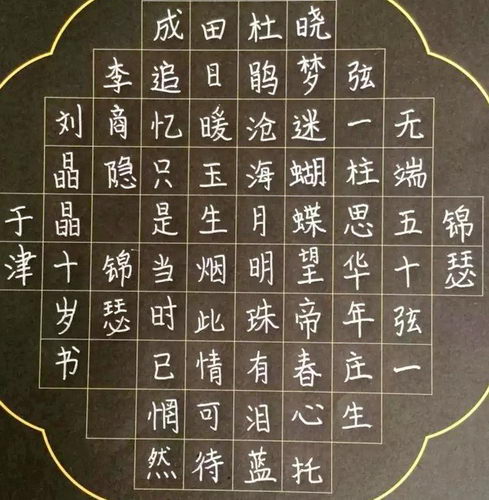 锦瑟
无端五十弦一
弦一柱思华年庄生
晓梦迷蝴蝶望帝春心托
杜鹃沧海月明珠有泪蓝
田日暖玉生烟此情可待
成追忆只是当时已惘然
李商隐 锦瑟
刘晶晶十岁书
于津